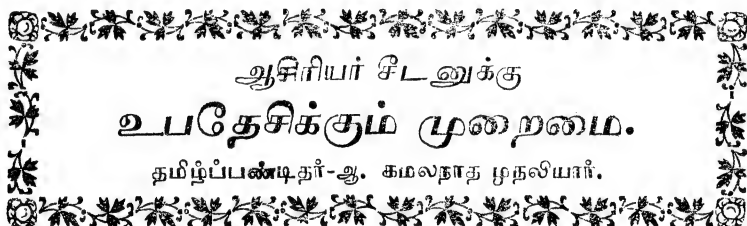 ஆசிரியர் சீடனுக்கு
உபதேசிக்கும் முறைமை.
தமிழ்ப்பண்டிதர்-ஆ. கமலநாத முதலியார்.